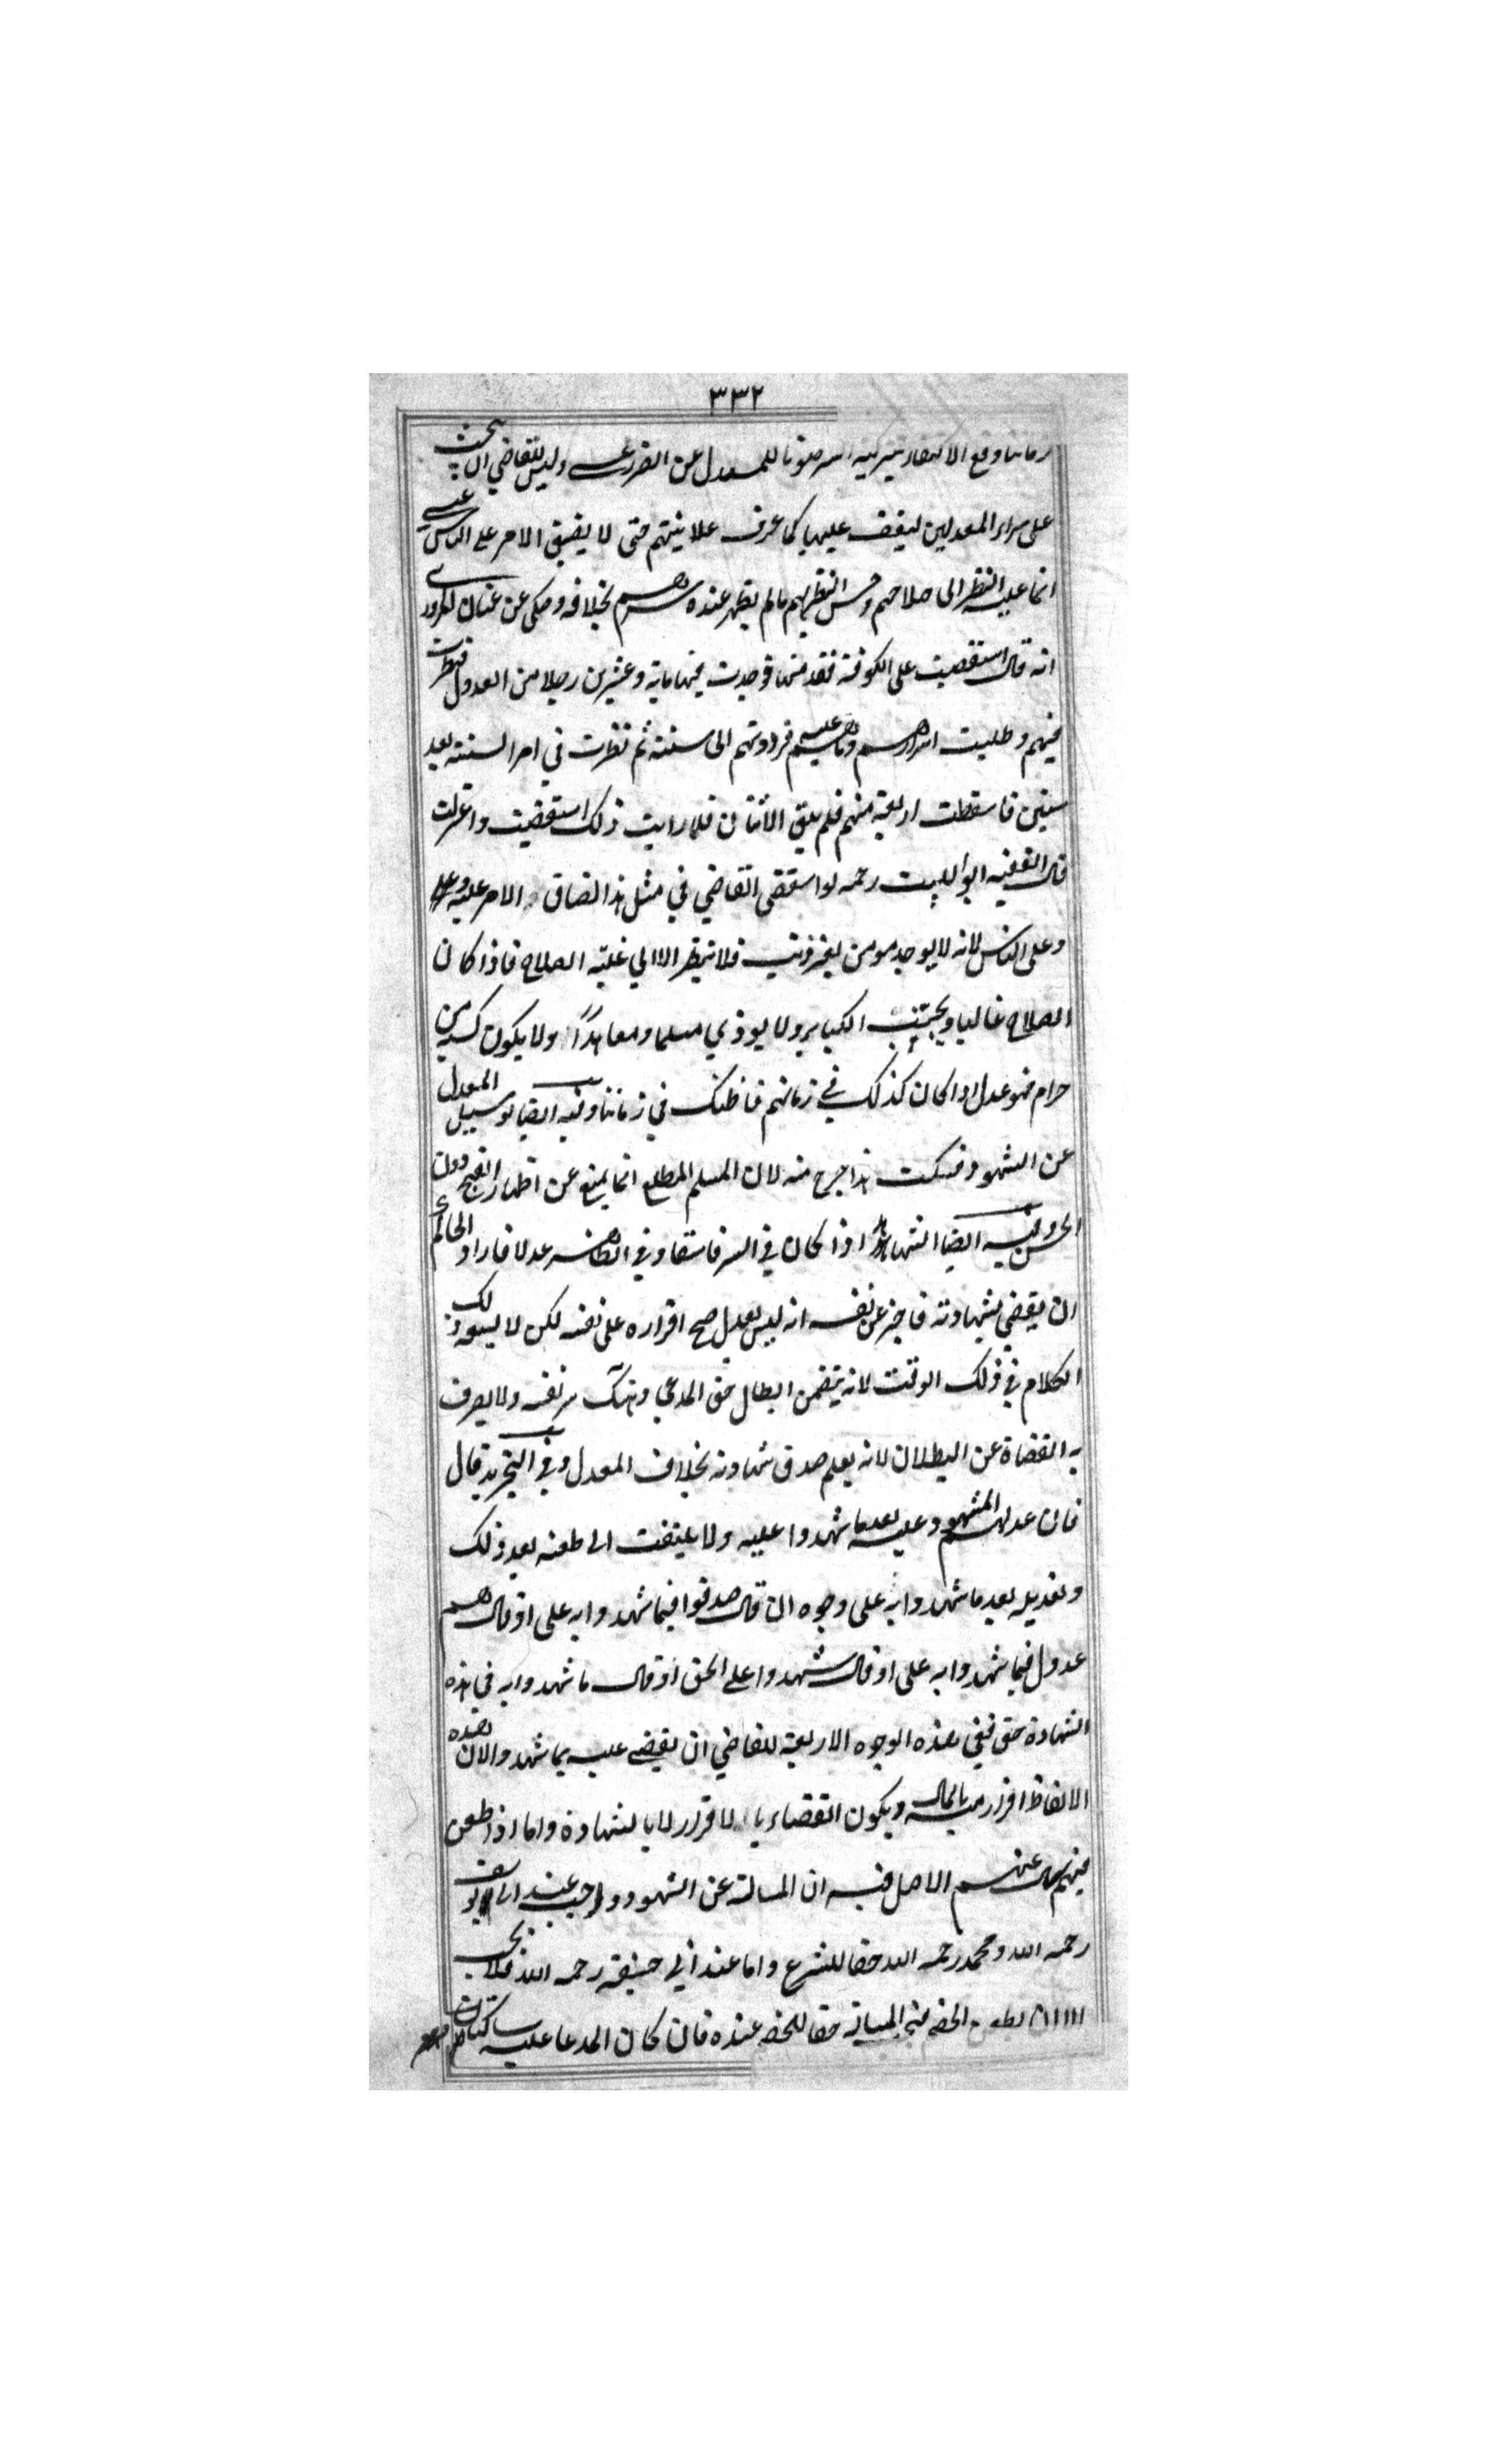 ٣٣٢
زماننا وقع الاكتفاء بتزكية السر صونا للمعدل عن الضرر وليس للقاضي ان يبحث
على سراء المعدلين ليقف عليها كما عرف علانيتهم حتى لا يضيق الامر على الناس
انما عليه النظر الى صلاحهم وحسن النظر لهم ما لم يظهر عنده بخلافه وحكى عن
انه قال استقضيت على الكوفة فقدمتها فوجدت فيها ماية وعشرين رجلا من العدول فنظرت
فيهم وطلبت اسرارهم فرددتهم الى ستة ثم نظرت في امر الستة بعد
سنين فاسقطت اربعة منهم فلم يبق الا اثنان فلما رايت ذلك استعفيت واعتزلت
قال الفقيه ابو الليث رحمه لو استقصى القاضي في مثل هذا لضاق الامر عليه
وعلى الناس لانه لا يوجد مومن بغير ذنب فلا ينظر الا الي غلبة الصلاح فاذا كان
الصلاح غالبا ويجتنب الكباير ولا يوذي مسلما ومعاهدًا ولا يكون كسبه من
حرام فهو عدل اذا كان كذلك في زمانهم فما ظنك في زماننا وفيه ايضا لو سييل المعدل
عن الشهود فسكت هذا جرح منه لان المسلم المطلع انما يمنع عن اظهار القبيح دون
الحسن وفيه ايضا الشاهد اذا كان في السر فاسقا وفي الظاهر عدلا فاراد الحاكم
ان يقضي بشهادته فاخبر عن نفسه انه ليس بعدل صح اقراره على نفسه لكن لا يسعه ذلك
الكلام في ذلك الوقت لانه يتضمن ابطال حق المدعي وهتك سر نفسه ولا يصرف
به القضاة عن البطلان لانه يعلم صدق شهادته بخلاف المعدل وفي التجريد قال
فان عدلهم المشهود عليه بعد ما شهدوا عليه ولا يلتفت الى طعنه بعد ذلك
وتعديله بعد ما شهدوا به على وجوه ان قال صدقوا فيما شهدوا به على او قال هم
عدول فيما شهدوا به على او قال شهدوا على الحق او قال ما شهدوا به في هذه
الشهادة حق ففي هذه الوجوه الاربعة للقاضي ان يقضي عليه بما شهدوا لان هذه
الالفاظ اقرار منه بالمال ويكون القضاء بالاقرار لا بالشهادة واما اذا طعن
فيهم سال عنهم الاصل فيه ان المسالة عن الشهود واجب عند ابي يوسف
رحمه الله ومحمد رحمه الله حقا للشرع واما عند ابي حنيفة رحمه الله فلا يجب
ان يطعن الخصم فيجب المسالة حقا للخصم عنده فان كان المدعا عليه ساكتا